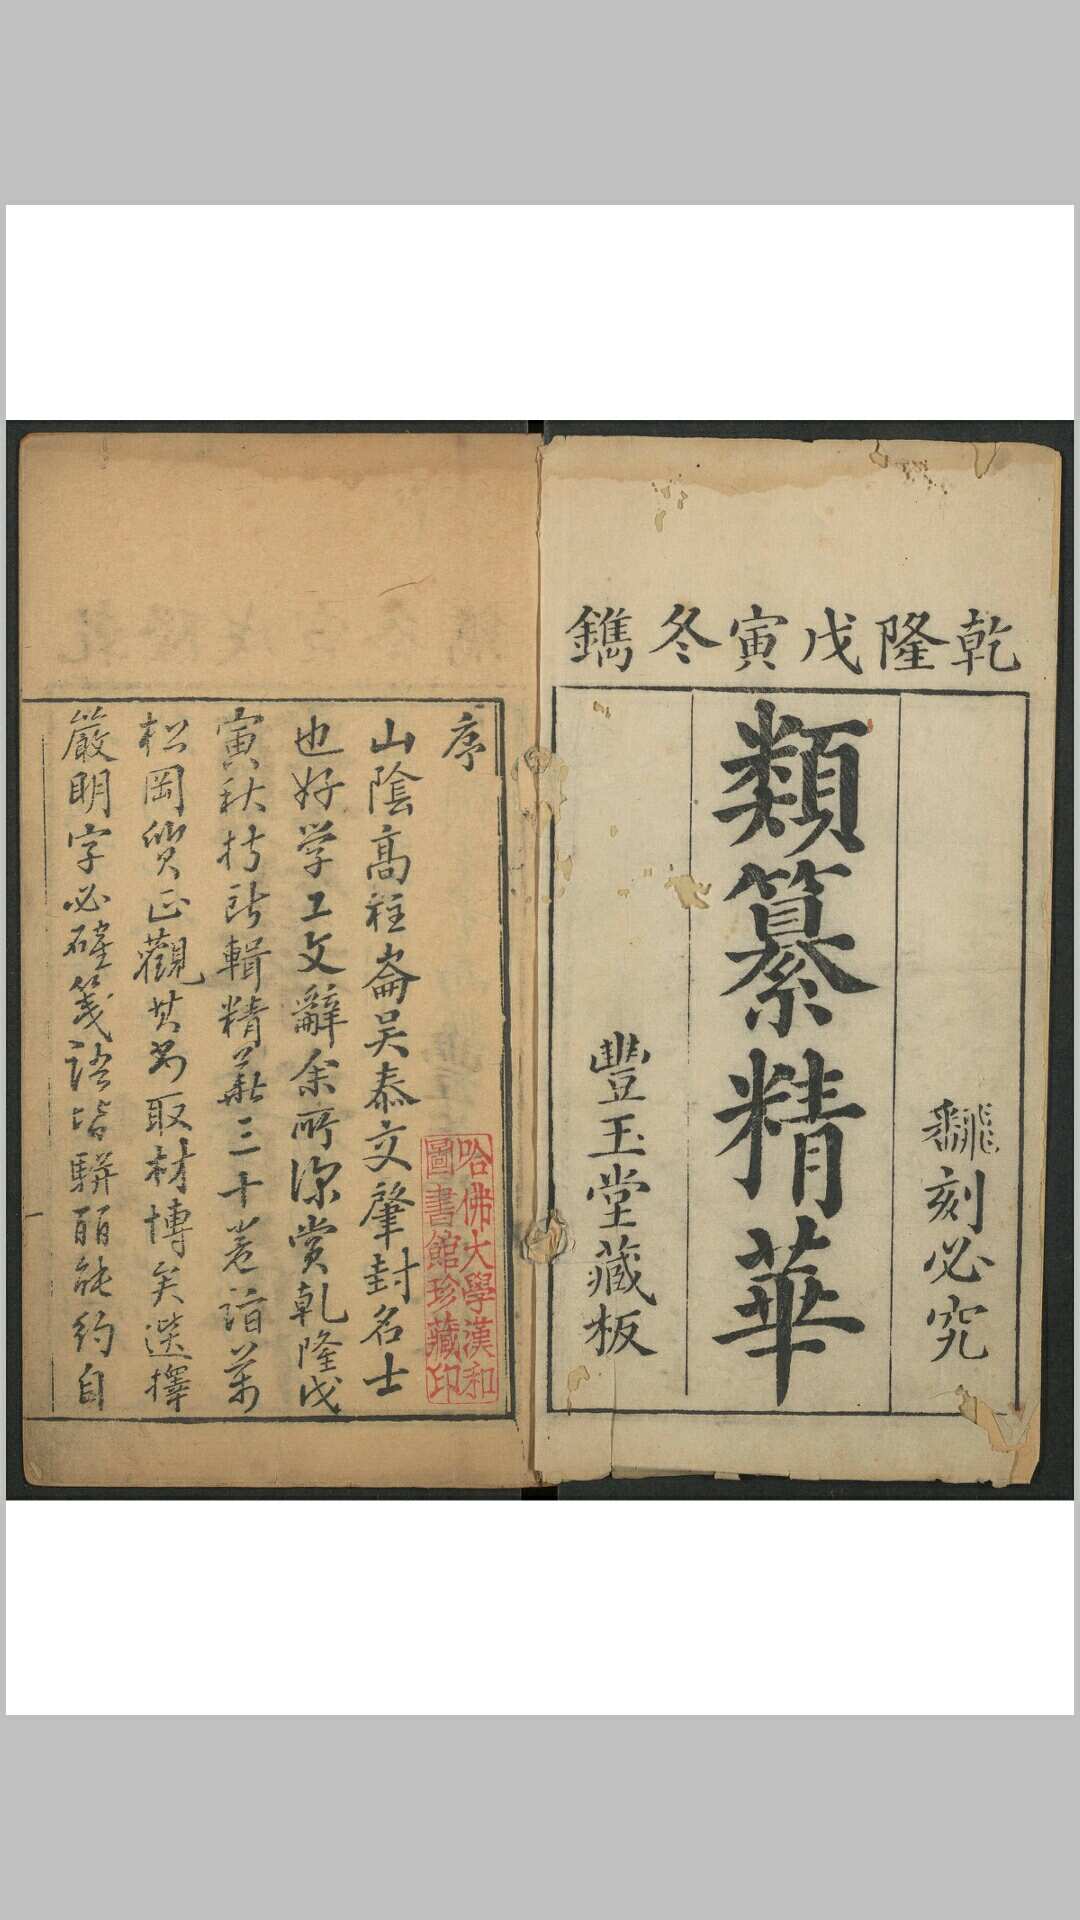 乾隆戊寅冬鐫
飜刻必究
類纂精華
豐玉堂藏板
序
山陰高柱崙吳泰文肇封名士
也好学工文辭余所深賞乾隆戊
寅秋持所輯精華三十卷詣莱
松岡質正觀其為取材博矣選擇
嚴明字必確箋語皆駢丽能約自
哈佛大學漢和
圖書館珍藏印